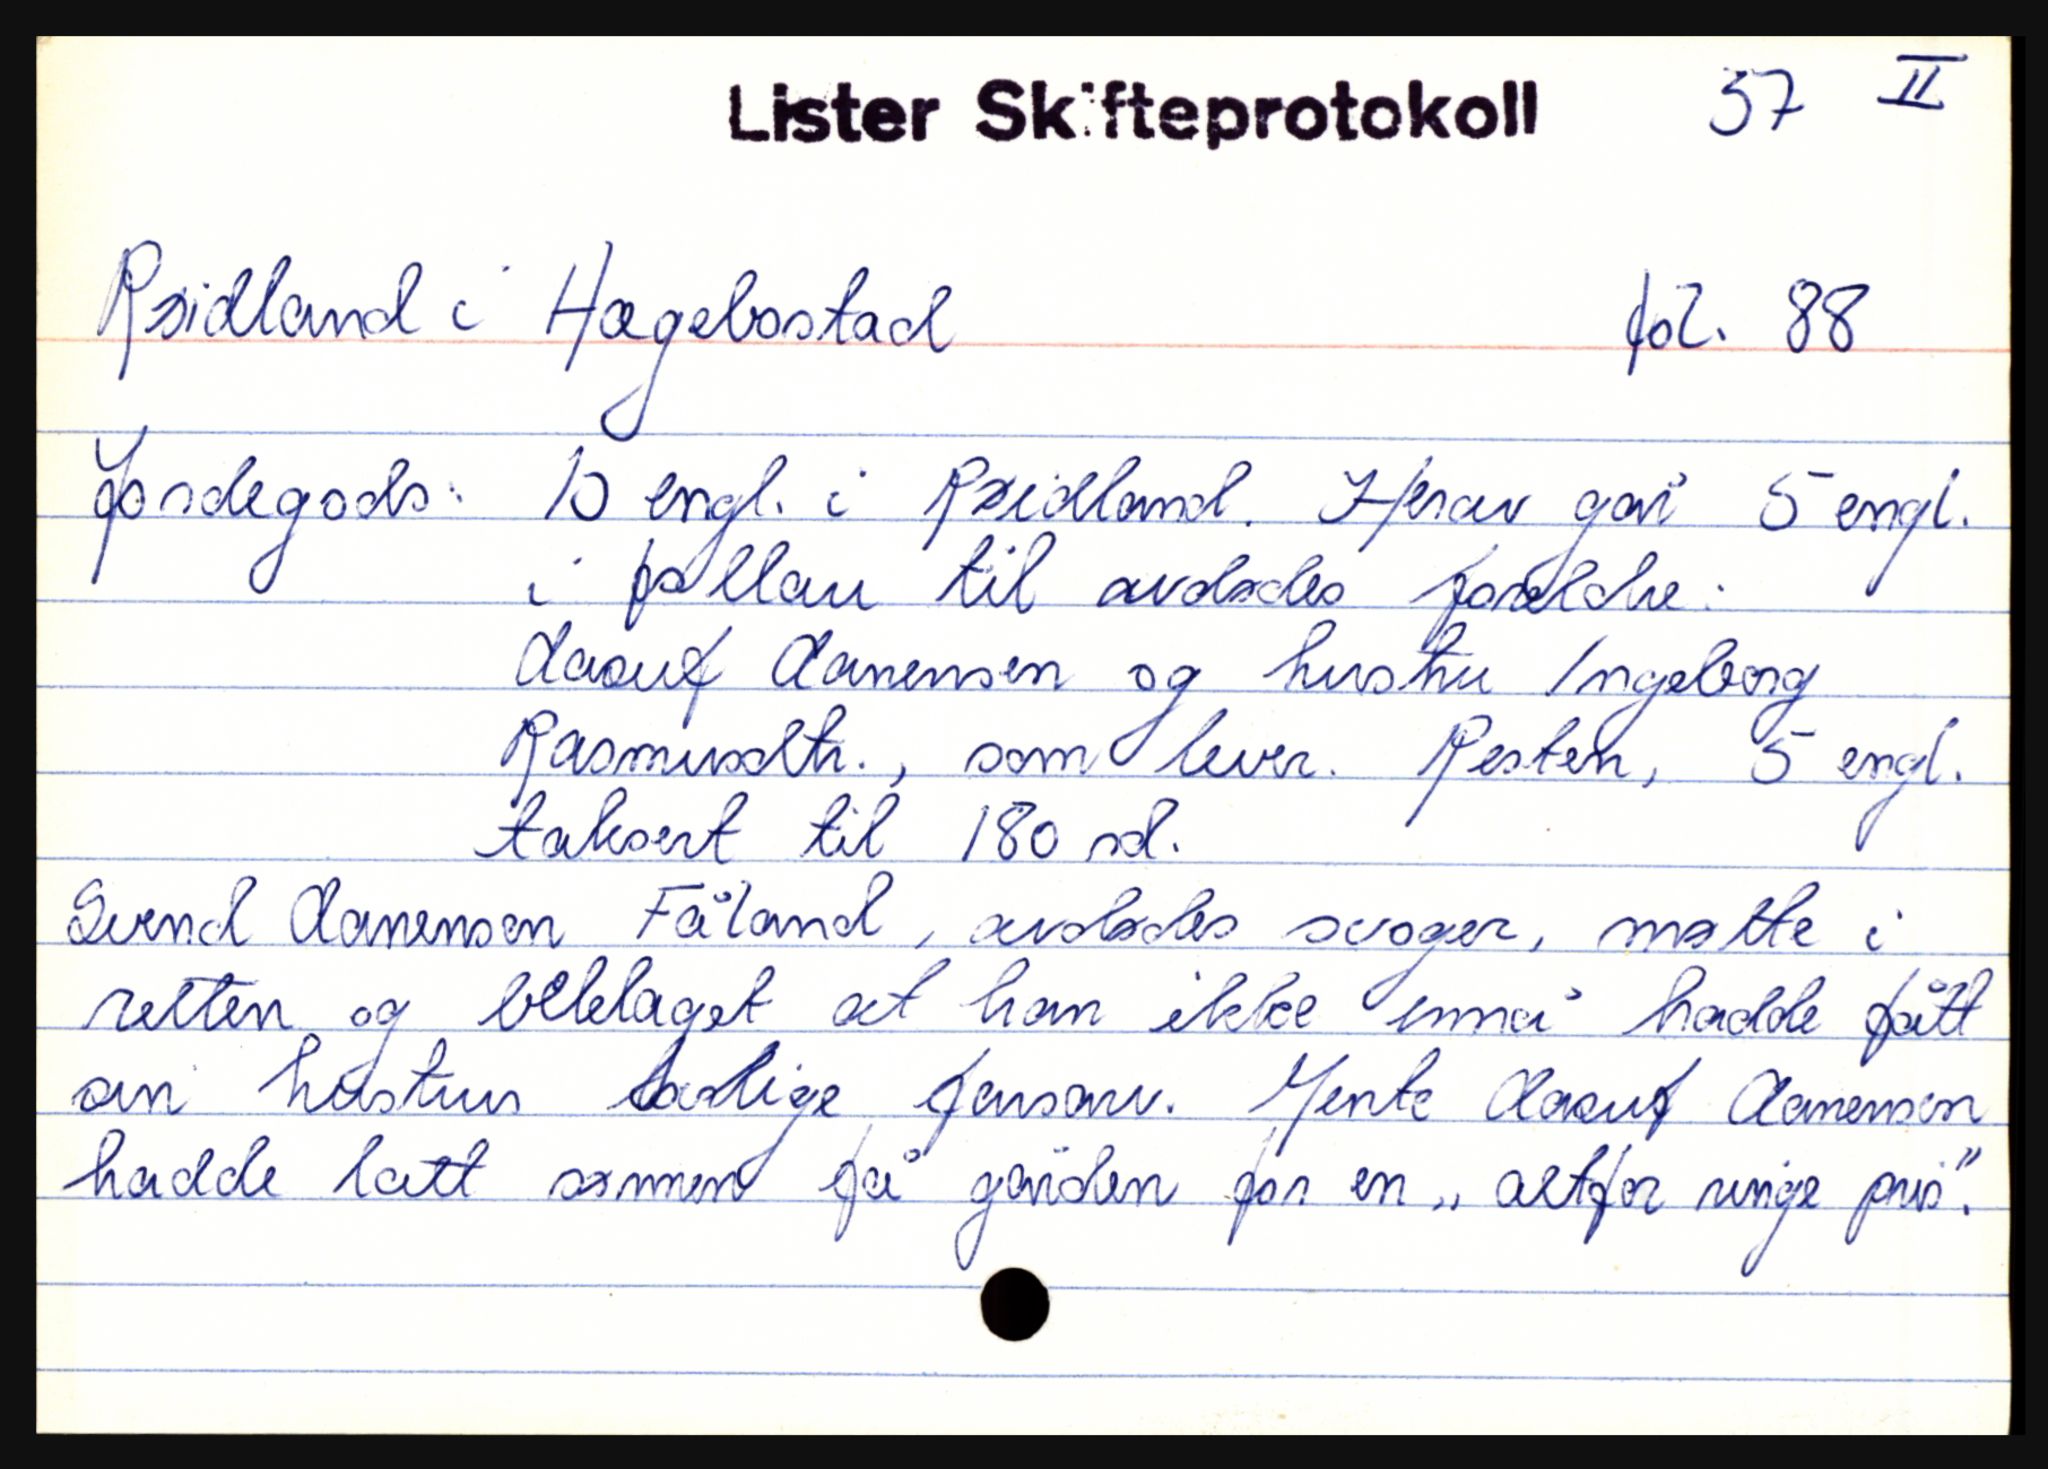 Lister Skifteprotokoll 37 II
Røidland i Hægebostad fol. 88
Jordegods: 10 engl. i Røidland. Herav går 5 engl.
i føllau til avdødes foreldre:
Aasuf Aanensen og hustru Ingeborg
Rasmusdtr., som lever. Resten, 5 engl.
taksert til 180 rd.
Svend Aanensen Fåland, avdødes svoger, møtte i
retten og beklaget at han ikke ennå hadde fått
sin hustrus lovlige farsarv. Mente Aasuf Aanensen
hadde latt sønnen få gården for en „altfor ringe pris".